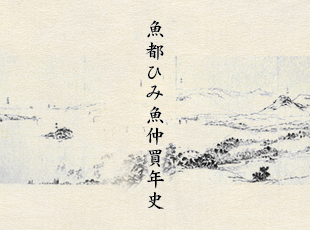 魚都ひみ魚仲買年史